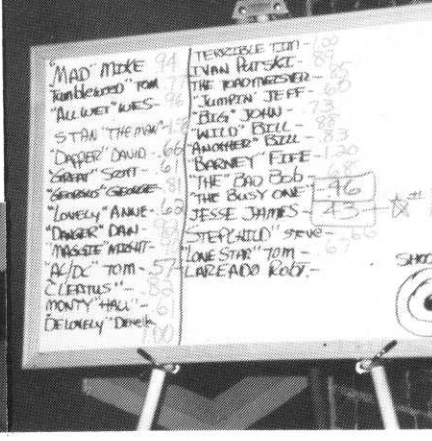 "MAD" MIKE 94
"Tumbleweed" TOM 77
"ALL WET" WES- 96
STAN "THE MAN"-
"DAPPER" DAVID - .66
"GREAT" SCOTT - 61
"GEORGOUS" GEORGE- 81
"LOVELY" ANNE- .60
"DANGER" DAN
"MAGGIE"
AC/DC TOM - 57
CLEATUS"-
MONTY "HALL" -
DELOVELY" Derek
1.00
TERRIBLE TIM -
IVAN PUTSKI.- 89
THE TOADMEISTER-
"JUMPIN" JEFF -
"BIG" JOHN - 73
"WILD" BILL - 88
"ANOTHER" BILL - .83
"BARNEY" FIFE - 1.20
"THE" BAD BOB -
"THE BUSY ONE" 46
JESSE JAMES - 43
"STEPCHILD" STEVE -
"LONE STAR" TOM - 67
LAREADO ROBY.-